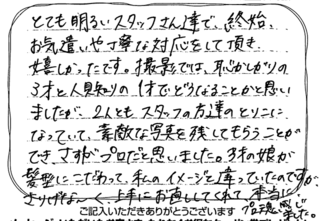 とても明るいスタッフさん達で、終始、
お気遣いや丁寧な対応をして頂き
嬉しかったです。撮影では、恥ずかしがりの
3才と人見知りの1才でどうなることかと思い
ましたが、2人ともスタッフの方達のとりこに
なっていて、素敵な写真を残してもらうことが
でき、さすがプロだと思いました。3才の娘が
髪型にこだわって、私のイメージと違っていたのですが、
さりげな〜く上手にお直ししてくれて本当に
プロ魂感じました。
ご記入いただきありがとうございます